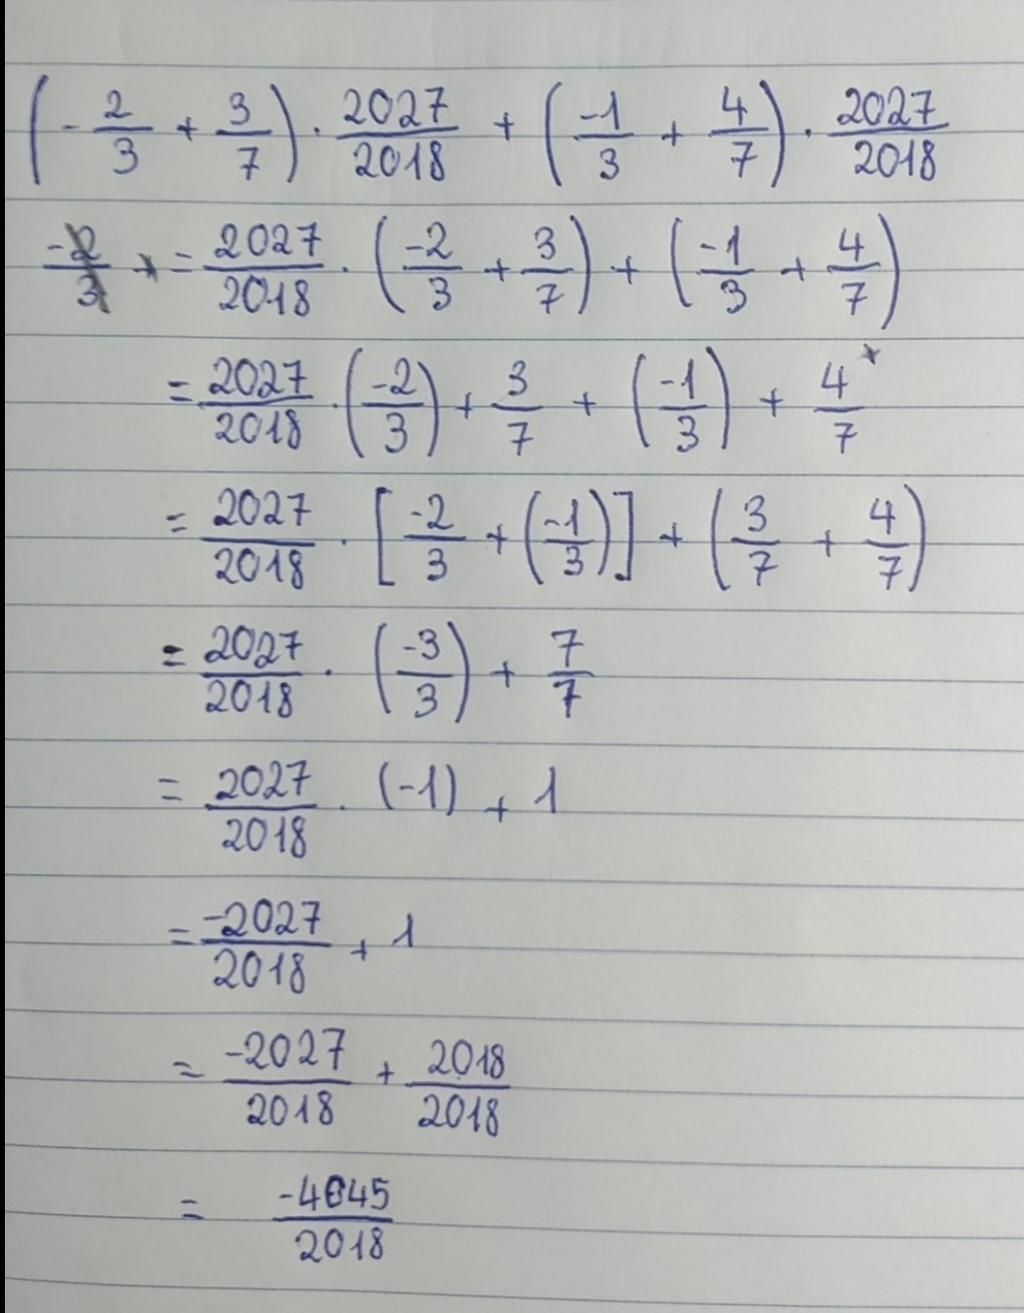 (-2/3 + 3/7) · 2027/2018 + (-1/3 + 4/7) · 2027/2018
= 2027/2018 · (-2/3 + 3/7) + (-1/3 + 4/7)
= 2027/2018 · (-2/3) + 3/7 + (-1/3) + 4/7
= 2027/2018 · [-2/3 + (-1/3)] + (3/7 + 4/7)
= 2027/2018 · (-3/3) + 7/7
= 2027/2018 · (-1) + 1
= -2027/2018 + 1
= -2027/2018 + 2018/2018
= -4045/2018